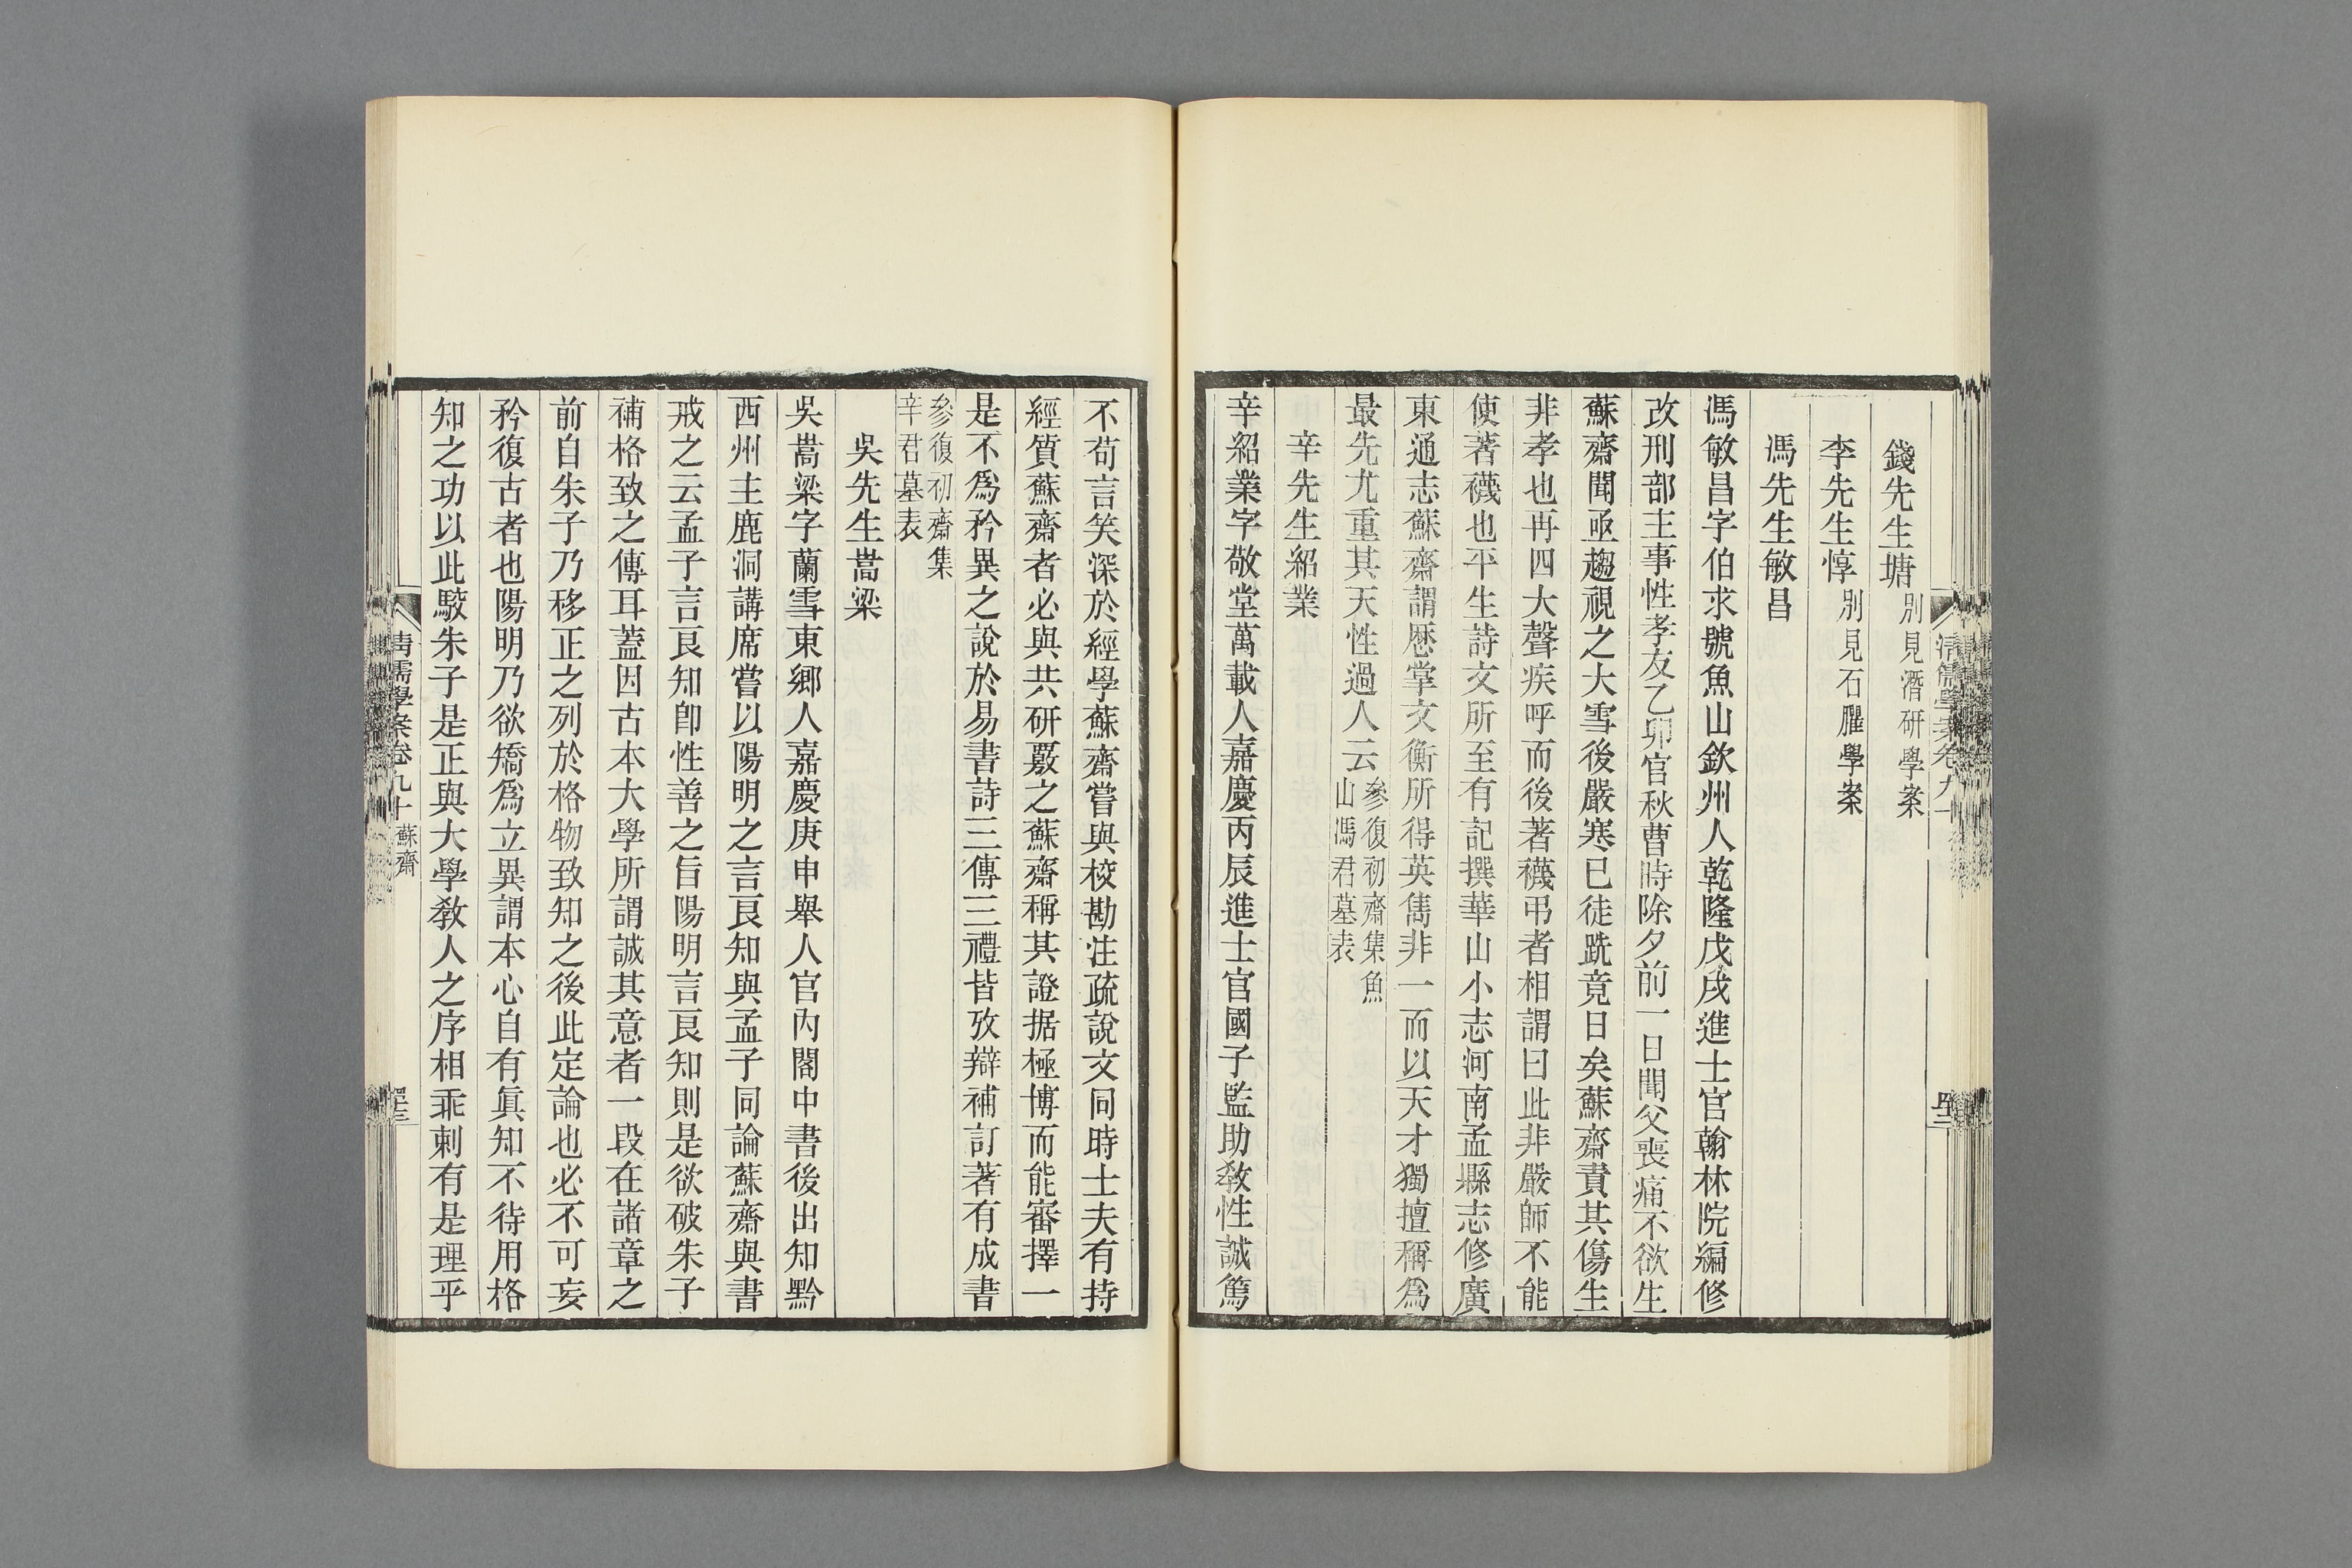 錢先生塘別見潛研學案
李先生惇別見石臞學案
馮先生敏昌
馮敏昌字伯求號魚山欽州人乾隆戊戌進士官翰林院編修
改刑部主事性孝友乙卯官秋曹時除夕前一日聞父喪痛不欲生
蘇齋聞亟趨視之大雪後嚴寒已徒跣竟日矣蘇齋責其傷生
非孝也再四大聲疾呼而後著襪弔者相謂曰此非嚴師不能
使著襪也平生詩文所至有記撰華山小志河南孟縣志修廣
東通志蘇齋謂歷掌文衡所得英雋非一而以天才獨擅稱爲
最先尤重其天性過人云參復初齋集魚
山馮君墓表
辛先生紹業
辛紹業字敬堂萬載人嘉慶丙辰進士官國子監助教性誠篤
不苟言笑深於經學蘇齋嘗與校勘注疏說文同時士夫有持
經質蘇齋者必與共研覈之蘇齋稱其證据極博而能審擇一
是不爲矜異之說於易書詩三傳三禮皆攷辯補訂著有成書
參復初齋集
辛君墓表
吳先生嵩梁
吳嵩梁字蘭雪東鄉人嘉慶庚申舉人官內閣中書後出知黔
西州主鹿洞講席嘗以陽明之言良知與孟子同論蘇齋與書
戒之云孟子言良知卽性善之旨陽明言良知則是欲破朱子
補格致之傳耳蓋因古本大學所謂誠其意者一段在諸章之
前自朱子乃移正之列於格物致知之後此定論也必不可妄
矜復古者也陽明乃欲矯爲立異謂本心自有眞知不待用格
知之功以此駮朱子是正與大學敎人之序相乖剌有是理乎
清儒學案卷九十 蘇齋